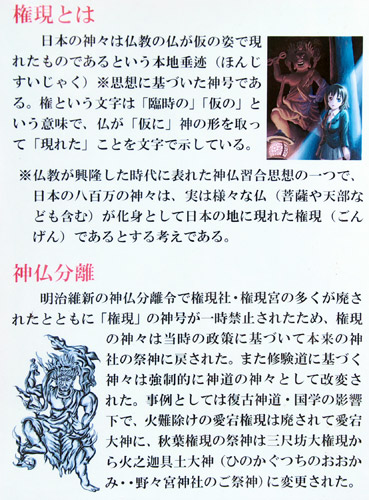 権現とは
日本の神々は仏教の仏が仮の姿で現
れたものであるという本地垂迹（ほんじ
すいじゃく）※思想に基づいた神号であ
る。権という文字は「臨時の」「仮の」と
いう意味で、仏が「仮に」神の形を取っ
て「現れた」ことを文字で示している。
※仏教が興隆した時代に表れた神仏習合思想の一つで、
日本の八百万の神々は、実は様々な仏（菩薩や天部な
ども含む）が化身として日本の地に現れた権現（ごん
げん）であるとする考えである。
神仏分離
明治維新の神仏分離令で権現社・権現宮の多くが廃さ
れたとともに「権現」の神号が一時禁止されたため、権現
の神々は当時の政策に基づいて本来の神
社の祭神に戻された。また修験道に基づく
神々は強制的に神道の神々として改変さ
れた。事例としては復古神道・国学の影響
下で、火難除けの愛宕権現は廃されて愛宕
大神に、秋葉権現の祭神は三尺坊大権現か
ら火之迦具土大神（ひのかぐつちのおおか
み・・野々宮神社のご祭神）に変更された。